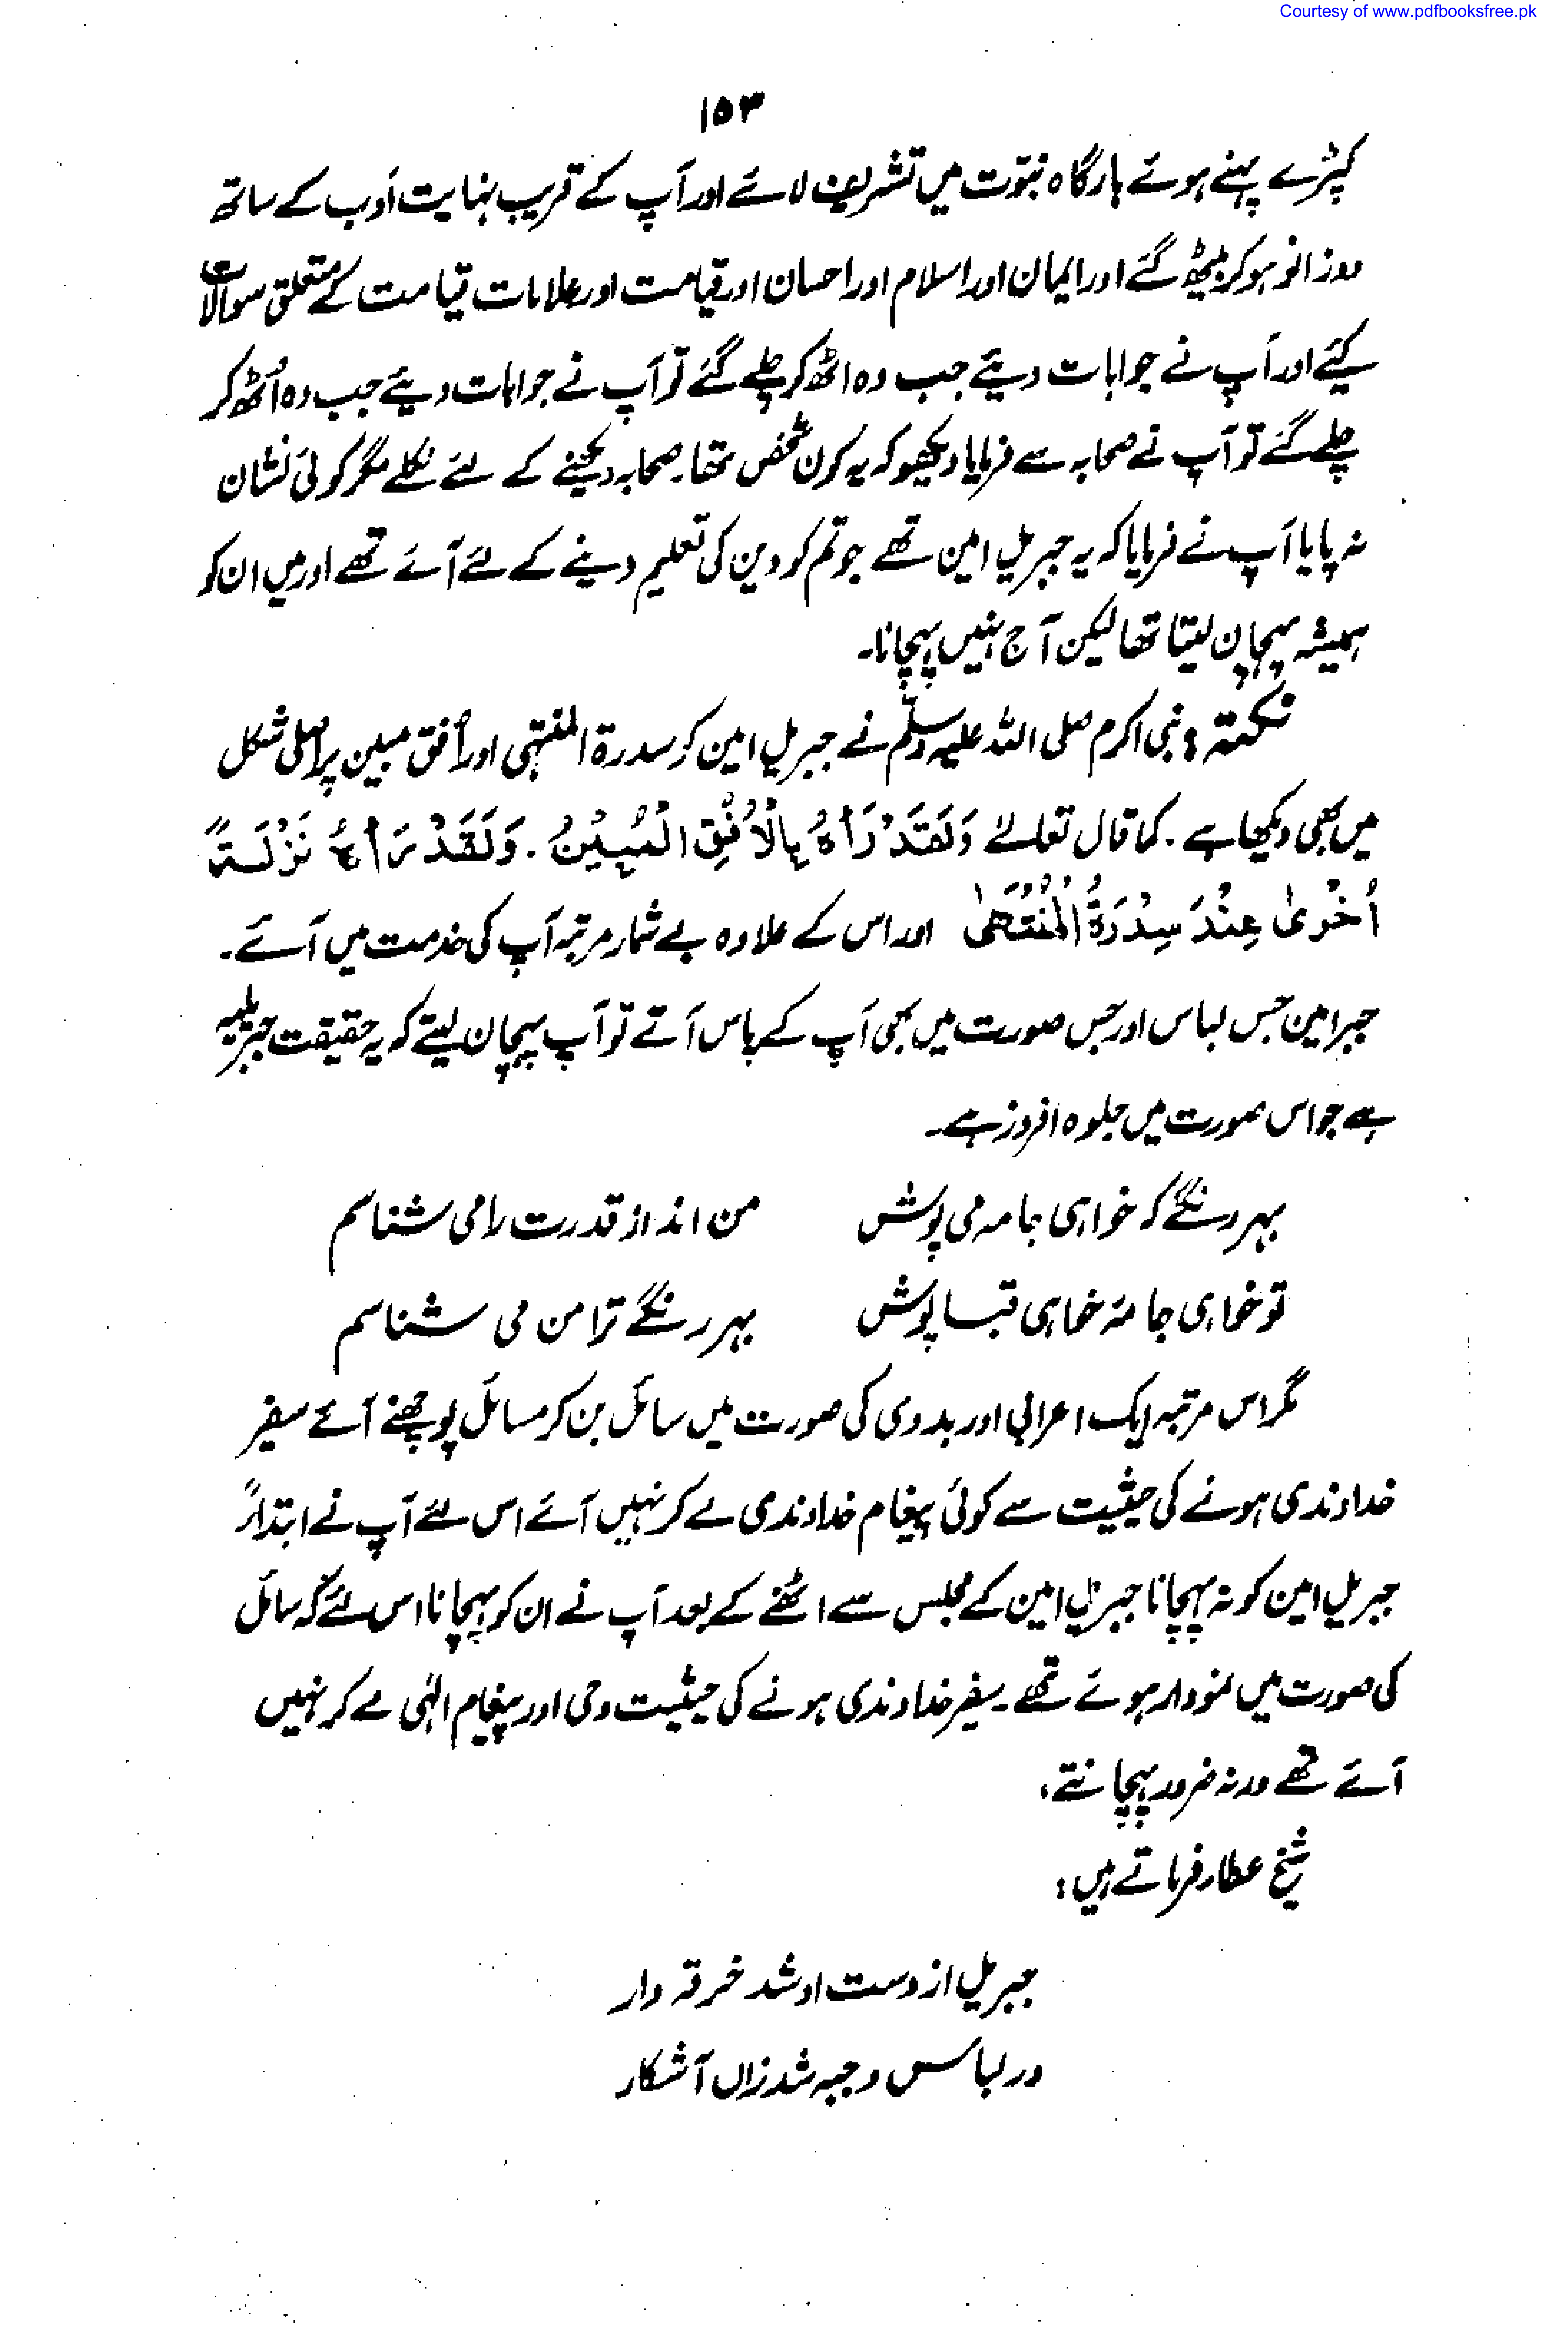 Courtesy of www.pdfbooksfree.pk
۱۵۳
کپڑے پہنے ہوئے بارگاہ نبوّت میں تشریف لائے اور آپ کے قریب نہایت اَدب کے ساتھ
دوزانو ہوکر بیٹھ گئے اور ایمان اور اسلام اور احسان اور قیامت اور علامات قیامت کے متعلق سوالات
کیئے اور آپ نے جوابات دیئے جب وہ اٹھ کر چلے گئے تو آپ نے جوابات دیئے جب وہ اُٹھ کر
چلے گئے تو آپ نے صحابہ سے فرمایا دیکھو کہ یہ کون شخص تھا۔ صحابہ دیکھنے کے لئے نکلے مگر کوئی نشان
نہ پایا آپ نے فرمایا کہ یہ جبریل امین تھے جو تم کو دین کی تعلیم دینے کے لئے آئے تھے اور میں ان کو
ہمیشہ پہچان لیتا تھا لیکن آج نہیں پہچانا۔
نکتہ : نبی اکرم صلی اللہ علیہ وسلّم نے جبریل امین کو سدرۃ المنتہی اور اُفق مبین پر اصلی شکل
میں بھی دیکھا ہے۔ کما قال تعالےٰ وَلَقَدْ رَاٰہُ بِالْاُفُقِ الْمُبِیْنُ۔ وَلَقَدْ رَاٰہُ نَزْلَۃً
اُخْرٰی عِنْدَ سِدْرَۃُ الْمُنْتَھٰی اور اس کے علاوہ بے شمار مرتبہ آپ کی خدمت میں آئے۔
جبرامین جس لباس اور جس صورت میں بھی آپ کے پاس آتے تو آپ پہچان لیتے کہ یہ حقیقت جبریلیہ
ہے جو اس صورت میں جلوہ افروز ہے۔
بہر رنگے کہ خواہی جامہ می پوش من انداز قدرت را می شناسم
تو خواہی جامہ خواہی قبا پوش بہر رنگے ترا من می شناسم
مگر اس مرتبہ ایک اعرابی اور بدوی کی صورت میں سائل بن کر مسائل پوچھنے آئے سفیر
خداوندی ہونے کی حیثیت سے کوئی پیغام خداوندی لے کر نہیں آئے اس لئے آپ نے ابتداءً
جبریل امین کو نہ پہچانا جبریل امین کے مجلس سے اٹھنے کے بعد آپ نے ان کو پہچانا اس لئے کہ سائل
کی صورت میں نمودار ہوئے تھے۔ سفیر خداوندی ہونے کی حیثیت وحی اور پیغام الٰہی لے کر نہیں
آئے تھے ورنہ ضرور پہچانتے،
شیخ عطار فرماتے ہیں :
جبریل از دست او شد خرقہ دار
در لباس وجیہ شد زاں آشکار